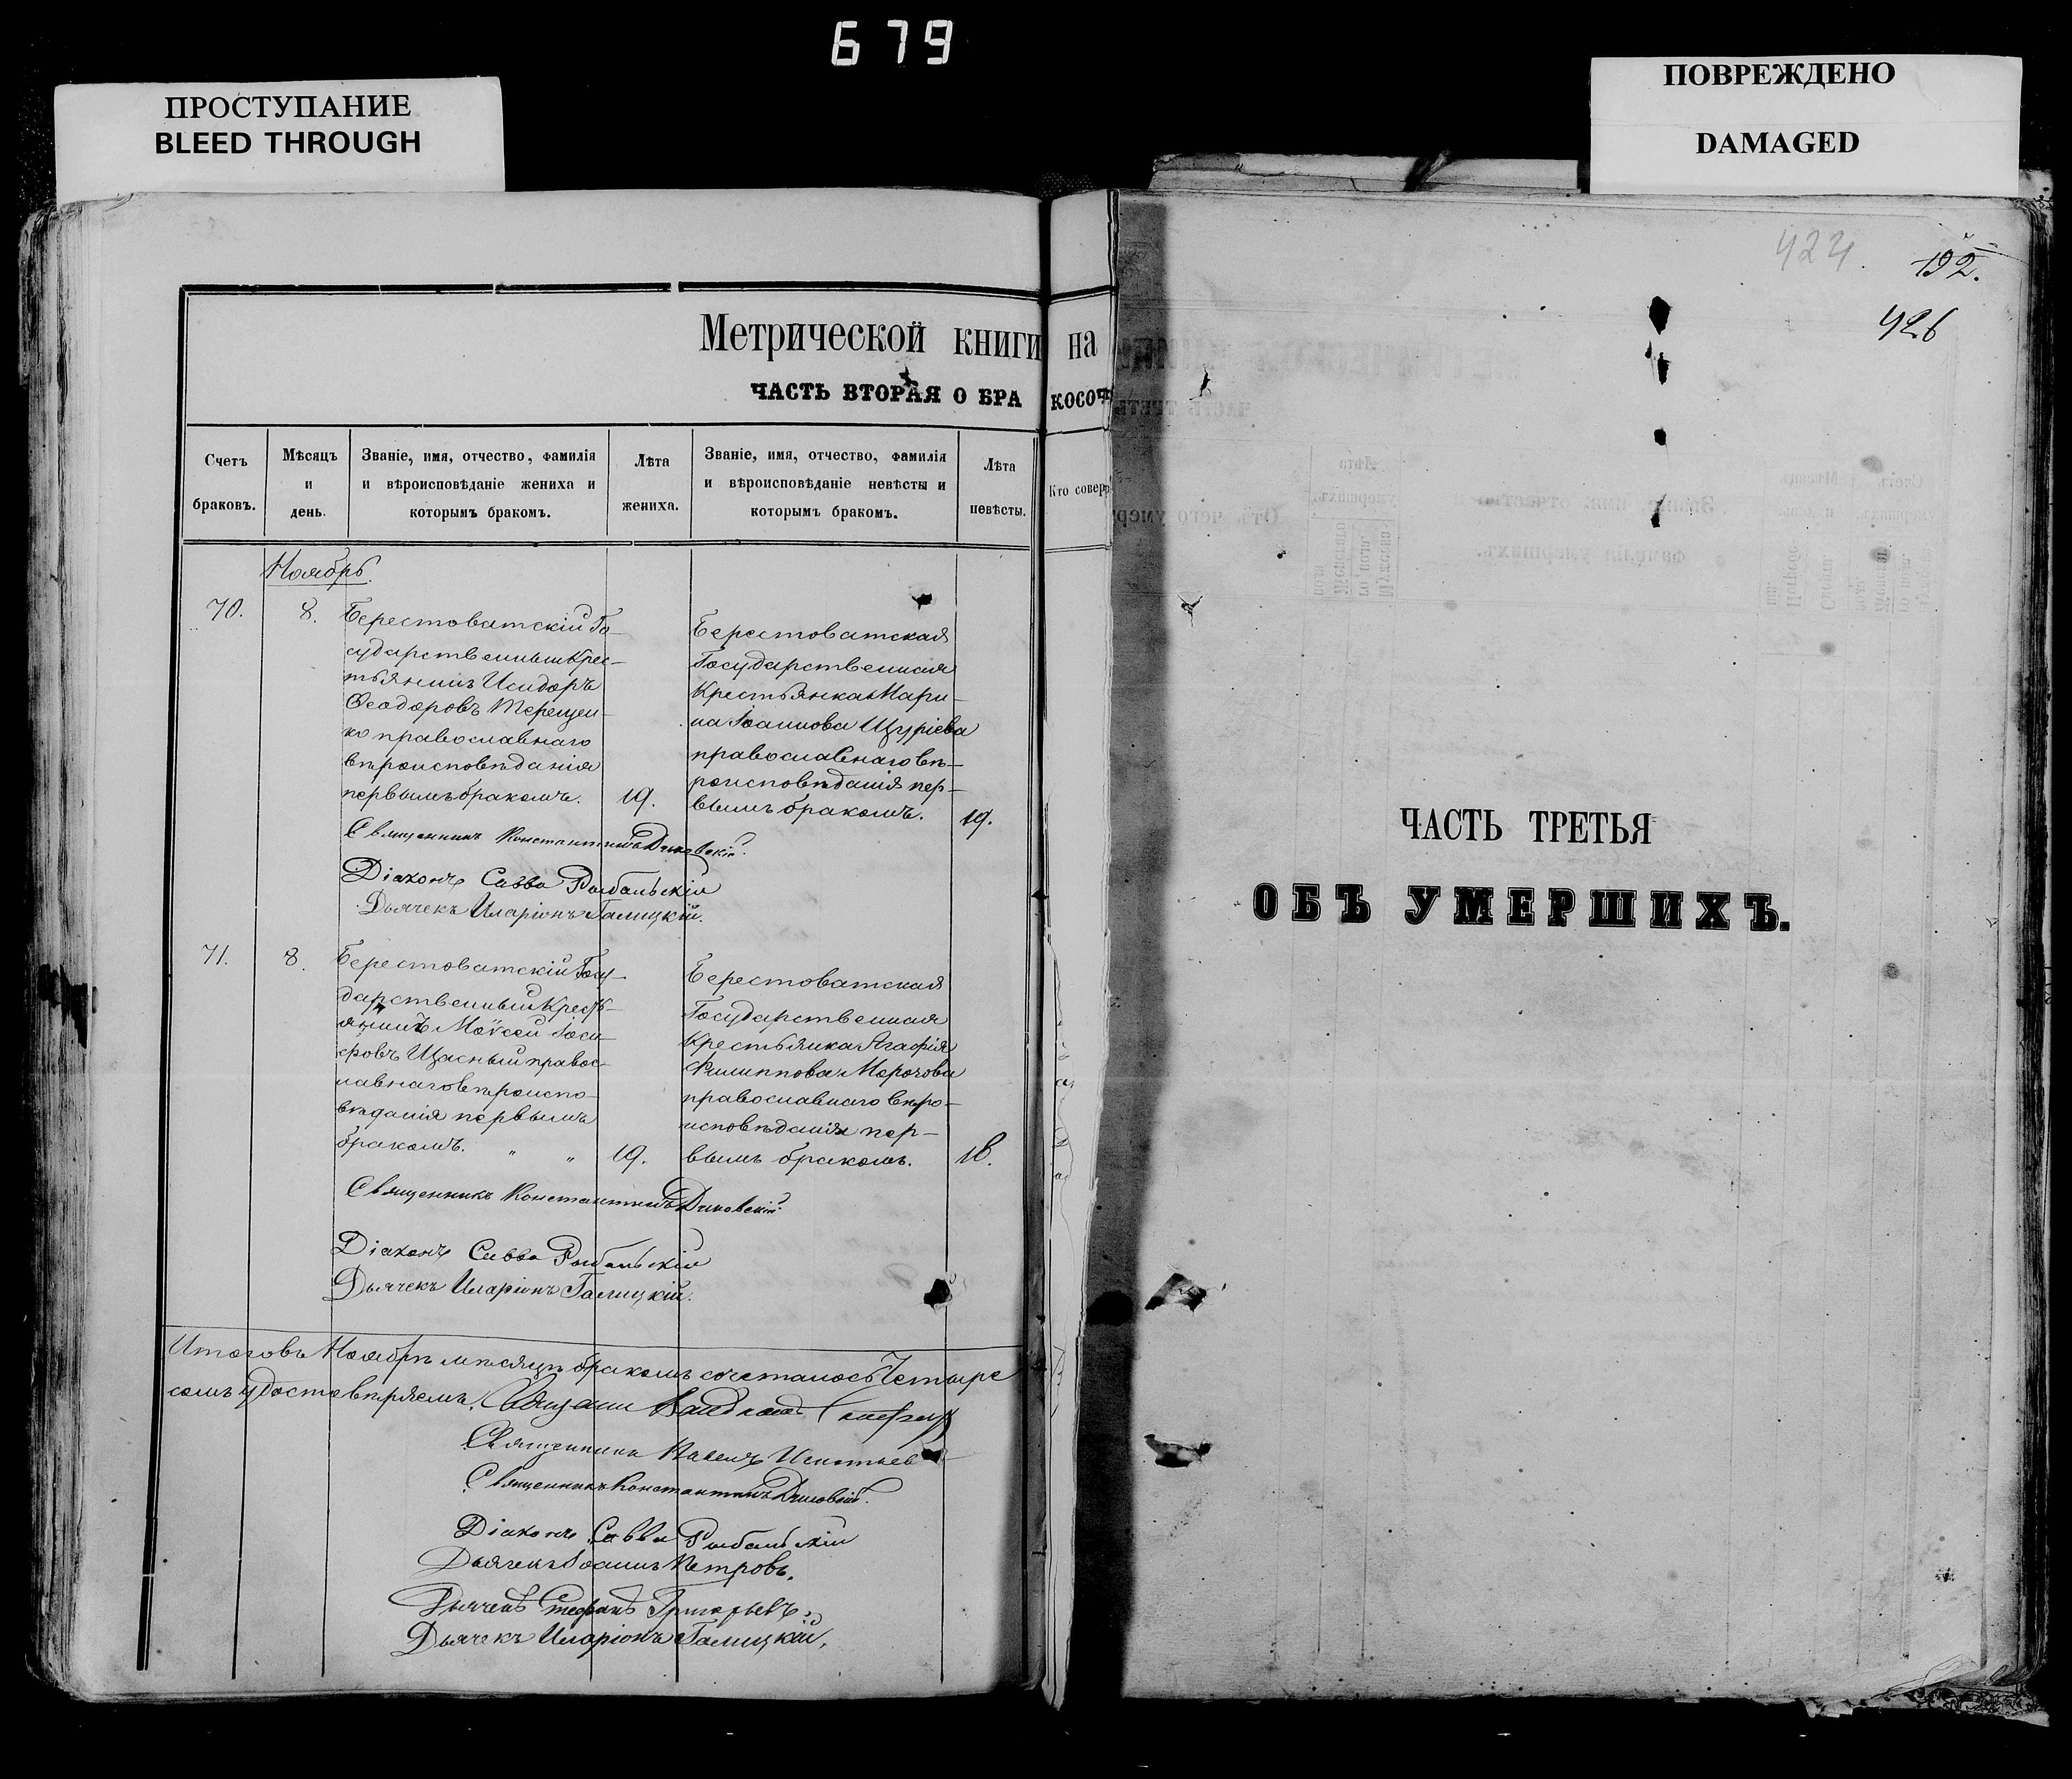 679
ПРОСТУПАНИЕ
BLEED THROUGH
ПОВРЕЖДЕНО
DAMAGED
Метрической книги на
ЧАСТЬ ВТОРАЯ О БРА КОСОЧ
Счетъ браковъ.
Мѣсяцъ и день.
Званіе, имя, отчество, фамилія
и вѣроисповѣданіе жениха и
которымъ бракомъ.
Лѣта жениха.
Званіе, имя, отчество, фамилія
и вѣроисповѣданіе невѣсты и
которымъ бракомъ.
Лѣта невѣсты.
Кто соверш
Ноябрь.
70.
8.
Берестоватскій Го-
сударственный Крес-
тьянинъ Исидоръ
Ѳеодоровъ Терещен-
ко православнаго
вѣроисповѣданія
первымъ бракомъ.
19.
Берестоватская
Государственная
Крестьянка Мари-
на Іоаннова Щуріева
православнаго вѣ-
роисповѣданія пер-
вымъ бракомъ.
19.
Священникъ Константинъ
Діаконъ Савва Рыбальскій
Дьячекъ Иларіонъ Галицкій.
71.
8.
Берестоватскій Госу-
дарственный Кресть-
янинъ Моѵсей Іоси-
фовъ Щасный правос-
лавнаго вѣроиспо-
вѣданія первымъ
бракомъ. " "
19.
Берестоватская
Государственная
Крестьянка Агафія
Филиппова Морозова
православнаго вѣро-
исповѣданія пер-
вымъ бракомъ.
18.
Священникъ Константинъ
Діаконъ Савва Рыбальскій
Дьячекъ Иларіонъ Галицкій.
Итого въ Ноябрѣ мѣсяцѣ бракомъ сочеталось Четыре
семъ удостовѣряемъ.
Священникъ Павелъ Игнатьев
Священникъ Константинъ
Діаконъ Савва Рыбальскій
Дьячекъ Іоаннъ Петровъ.
Дьячекъ Стефанъ Григорьевъ.
Дьячекъ Иларіонъ Галицкій.
424.
192.
426
ЧАСТЬ ТРЕТЬЯ
ОБЪ УМЕРШИХЪ.